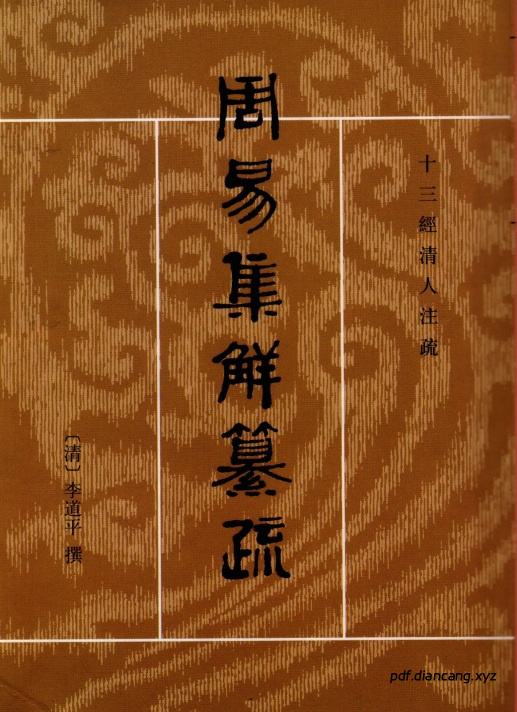 十三經清人注疏
周易集解纂疏
〔清〕李道平 撰
pdf.diancang.xyz